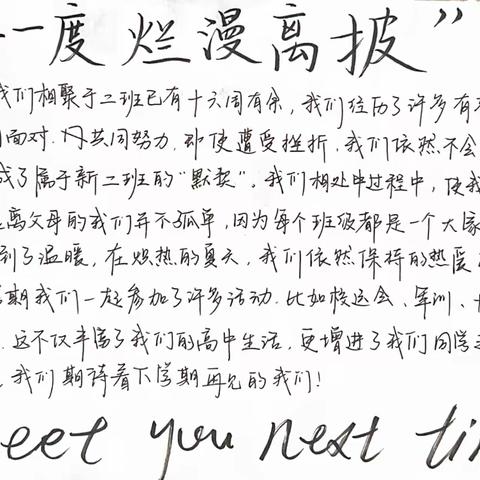 一度烂漫离披”
我们相聚于二班已有十六周有余，我们经历了许多有
面对.共同努力.即使遭受挫折，我们依然不会
成了属于新二班的“默契”。我们相处中过程中，使我
离父母的我们并不孤单，因为每个班级都是一个大家
到了温暖，在炽热的夏天，我们依然保持的热度
期我们一起参加了许多活动.比如校运会、军训、
这不仅丰富了我们的高中生活，更增进了我们同学
我们期待着下学期再见的我们！
eet you next ti